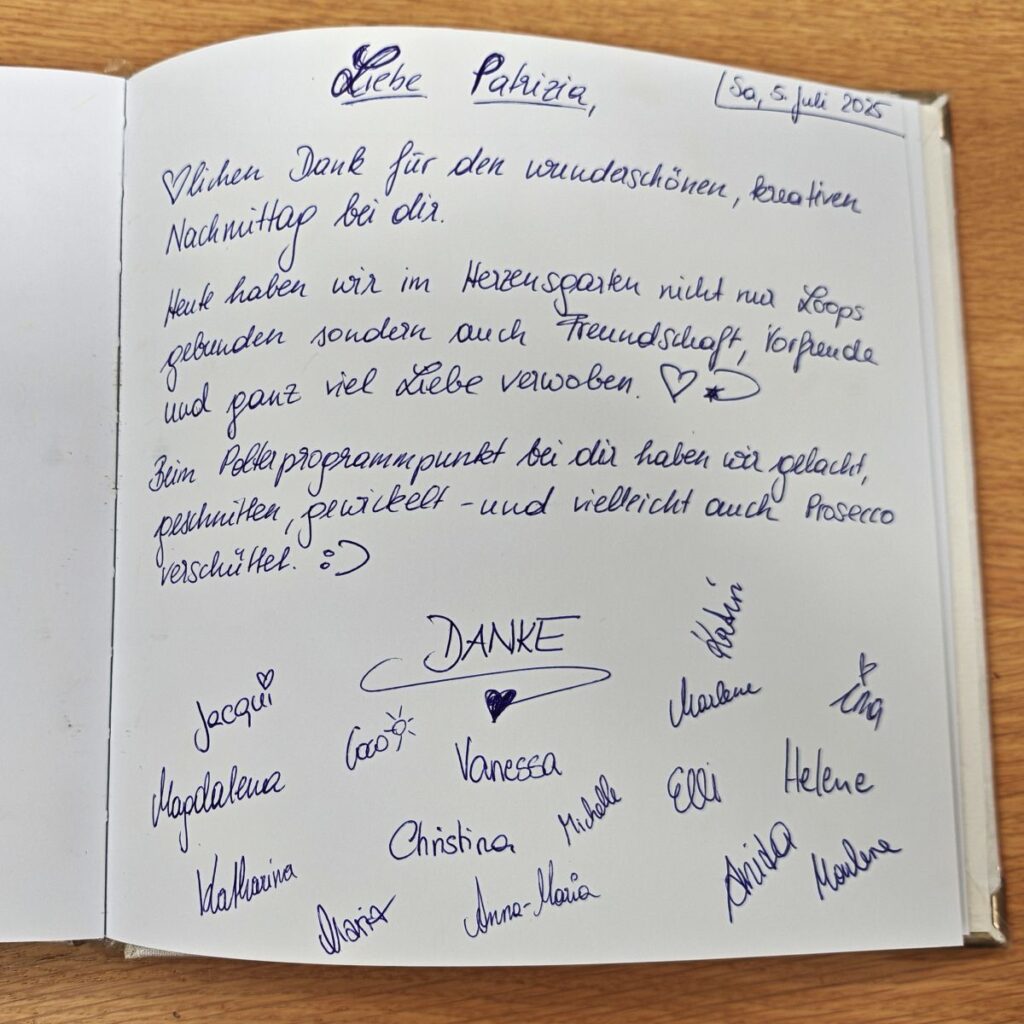 Liebe Patrizia,
Sa, 5. Juli 2025
♡lichen Dank für den wunderschönen, kreativen
Nachmittag bei dir.
Heute haben wir im Herzensgarten nicht nur Loops
gebunden sondern auch Freundschaft, Vorfreude
und ganz viel Liebe verwoben. ♡
Beim Polterprogrammpunkt bei dir haben wir gelacht,
geschnitten, gewickelt - und vielleicht auch Prosecco
verschüttet. :)
DANKE
Katrin
Jacqui
Marlene
Ina
Coco
Vanessa
Magdalena
Elli
Helene
Michelle
Christina
Katharina
Anita
Marlene
Maria
Anna-Maria